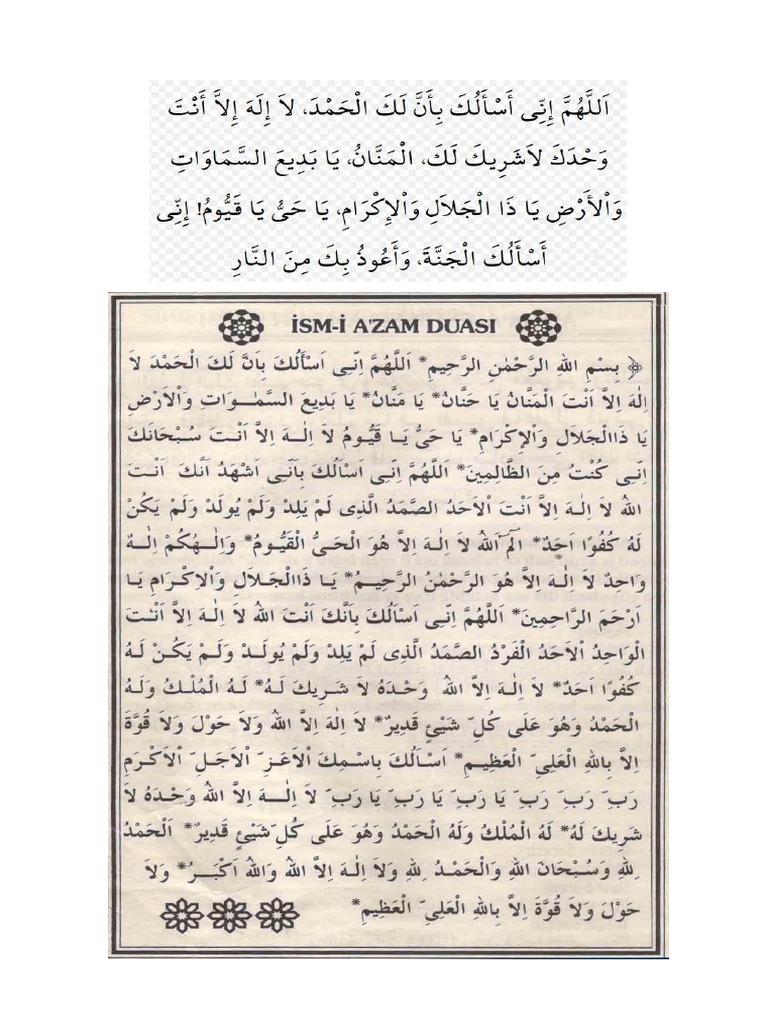 اَللَّهُمَّ إِنِّى أَسْأَلُكَ بِأَنَّ لَكَ الْحَمْدَ، لاَ إِلَهَ إِلاَّ أَنْتَ
وَحْدَكَ لاَشَرِيكَ لَكَ، الْمَنَّانُ، يَا بَدِيعَ السَّمَاوَاتِ
وَاْلأَرْضِ يَا ذَا الْجَلاَلِ وَاْلإِكْرَامِ، يَا حَىُّ يَا قَيُّومُ! إِنِّى
أَسْأَلُكَ الْجَنَّةَ، وَأَعُوذُ بِكَ مِنَ النَّارِ
İSM-İ A'ZAM DUASI
﴿ بِسْمِ اللهِ الرَّحْمٰنِ الرَّحِيمِ* اَللَّهُمَّ اِنِّى اَسْاَلُكَ بِاَنَّ لَكَ الْحَمْدَ لاَ
اِلٰهَ اِلاَّ اَنْتَ الْمَنَّانُ يَا حَنَّانُ* يَا مَنَّانُ* يَا بَدِيعَ السَّمٰوَاتِ وَاْلاَرْضِ
يَا ذَاالْجَلاَلِ وَاْلاِكْرَامِ* يَا حَىُّ يَا قَيُّومُ لاَ اِلٰهَ اِلاَّ اَنْتَ سُبْحَانَكَ
اِنِّى كُنْتُ مِنَ الظَّالِمِينَ* اَللَّهُمَّ اِنِّى اَسْاَلُكَ بِاَنِّى اَشْهَدُ اَنَّكَ اَنْتَ
اللهُ لاَ اِلٰهَ اِلاَّ اَنْتَ اْلاَحَدُ الصَّمَدُ الَّذِى لَمْ يَلِدْ وَلَمْ يُولَدْ وَلَمْ يَكُنْ
لَهُ كُفُوًا اَحَدٌ* الٓمٓ اَللهُ لاَ اِلٰهَ اِلاَّ هُوَ الْحَىُّ الْقَيُّومُ* وَاِلٰهُكُمْ اِلٰهٌ
وَاحِدٌ لاَ اِلٰهَ اِلاَّ هُوَ الرَّحْمٰنُ الرَّحِيمُ* يَا ذَاالْجَلاَلِ وَاْلاِكْرَامِ يَا
اَرْحَمَ الرَّاحِمِينَ* اَللَّهُمَّ اِنِّى اَسْاَلُكَ بِاَنَّكَ اَنْتَ اللهُ لاَ اِلٰهَ اِلاَّ اَنْتَ
الْوَاحِدُ اْلاَحَدُ الْفَرْدُ الصَّمَدُ الَّذِى لَمْ يَلِدْ وَلَمْ يُولَدْ وَلَمْ يَكُنْ لَهُ
كُفُوًا اَحَدٌ* لاَ اِلٰهَ اِلاَّ اللهُ وَحْدَهُ لاَ شَرِيكَ لَهُ* لَهُ الْمُلْكُ وَلَهُ
الْحَمْدُ وَهُوَ عَلَى كُلِّ شَيْئٍ قَدِيرٌ* لاَ اِلٰهَ اِلاَّ اللهُ وَلاَ حَوْلَ وَلاَ قُوَّةَ
اِلاَّ بِاللهِ الْعَلِىِّ الْعَظِيمِ* اَسْاَلُكَ بِاسْمِكَ اْلاَعَزِّ اْلاَجَلِّ اْلاَكْرَمِ
رَبِّ رَبِّ رَبِّ يَا رَبِّ يَا رَبِّ يَا رَبِّ لاَ اِلٰهَ اِلاَّ اللهُ وَحْدَهُ لاَ
شَرِيكَ لَهُ* لَهُ الْمُلْكُ وَلَهُ الْحَمْدُ وَهُوَ عَلَى كُلِّ شَيْئٍ قَدِيرٌ* اَلْحَمْدُ
لِلّٰهِ وَسُبْحَانَ اللهِ وَالْحَمْدُ لِلّٰهِ وَلاَ اِلٰهَ اِلاَّ اللهُ وَاللهُ اَكْبَرُ* وَلاَ
حَوْلَ وَلاَ قُوَّةَ اِلاَّ بِاللهِ الْعَلِىِّ الْعَظِيمِ*